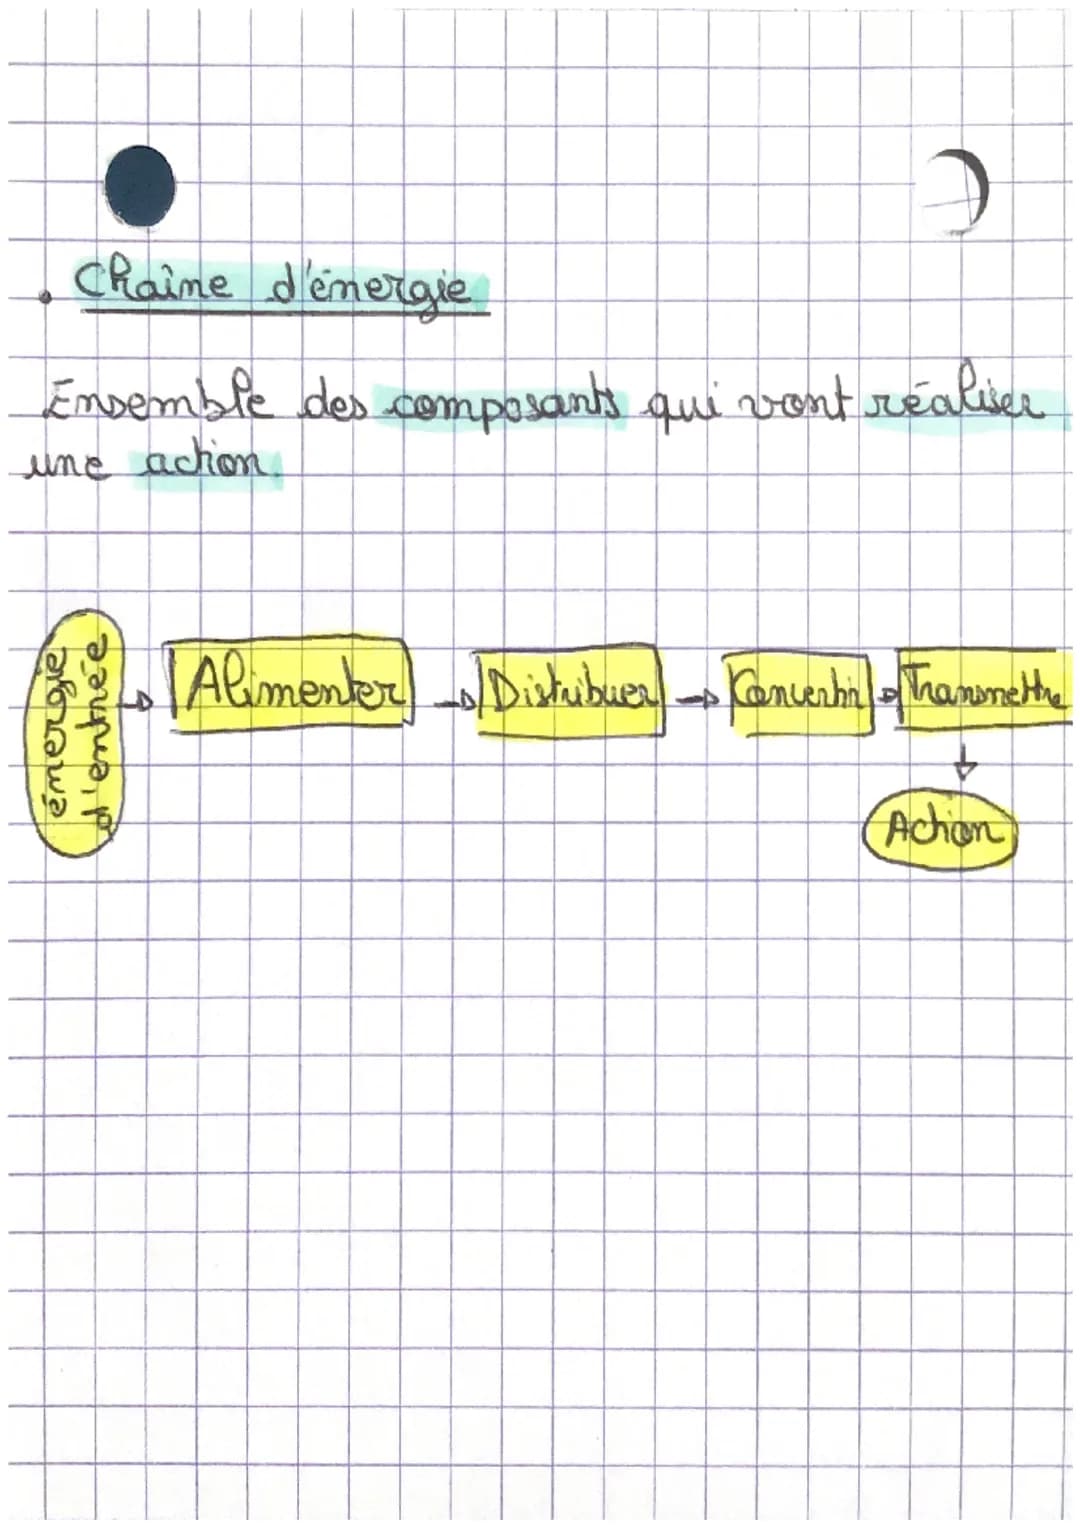 . Chaîne d'énergie
Ensemble des composants qui vont réaliser
une action.
énergie
d'entrée
Alimenter
Distribuer
Convertir
Transmettre
Action